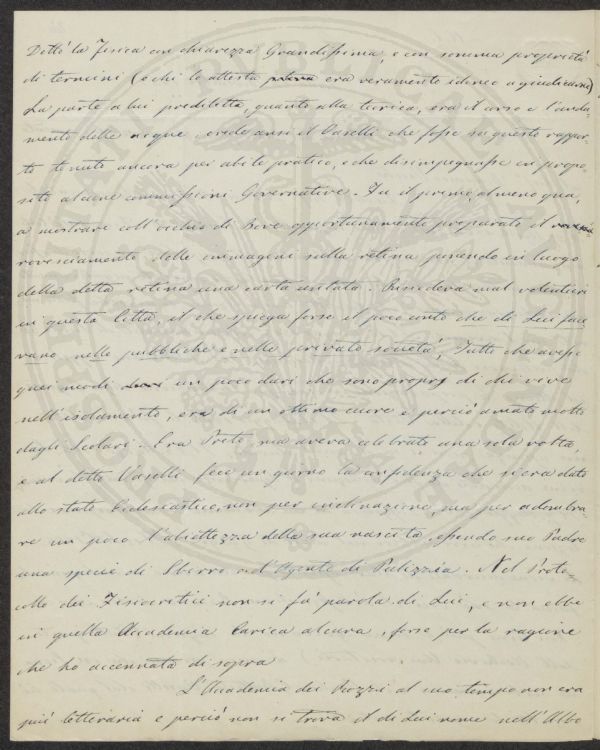 Dettò la Fisica con chiarezza Grandissima, e con somma proprietà
di termini (e chi lo attesta era veramente idoneo a giudicarne)
La parte a lui prediletta, quanto alla teorica, era il corso e l'anda-
mento delle acque crede anzi il Vaselli che fosse su questo rappor-
to tenuto ancora per abile pratico, e che disimpegnasse in propo-
sito alcune commissioni Governative. Fu il primo, almeno qua,
a mostrare coll'occhio di Bove opportunamente preparato il
rovesciamento delle immagini sulla retina ponendo in luogo
della detta retina una carta untata. Risiedeva mal volentieri
in questa Città, il che spiega forse il poco conto che di Lui face-
vano nelle pubbliche e nelle private società, Tutto che avesse
quei modi un poco duri che sono proprj di chi vive
nell'isolamento, era di un ottimo cuore e perciò amato molto
dagli Scolari. Era Prete, ma aveva celebrato una sola volta,
e al detto Vaselli fece un giorno la confidenza che si era dato
allo stato Ecclesiastico, non per inclinazione, ma per adombra-
re un poco l'abiettezza della sua nascita, essendo suo Padre
una specie di Sbirro o d'Agente di Pulizzia. Nel Proto-
collo dei Fisiocritici non si fà parola di Lui, e non ebbe
in quella Accademia Carica alcuna, forse per la ragione
che ho accennata di sopra
L'Accademia dei Rozzi al suo tempo non era
più letteraria e perciò non si trova il di Lui nome nell'Albo